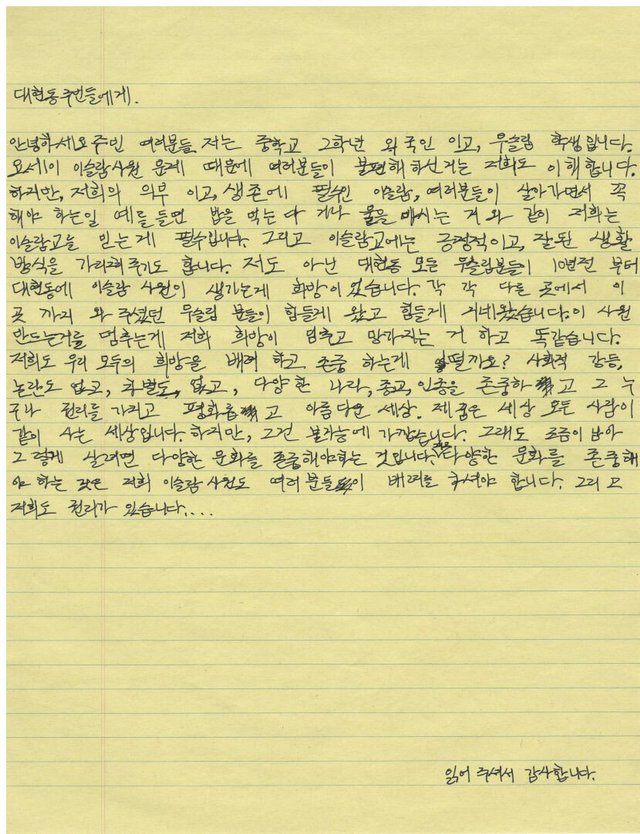 대현동주민들에게.
안녕하세요 주민 여러분들, 저는 중학교 2학년 외국인 이고, 무슬림 학생입니다.
요세이 이슬람사원 문제 때문에 여러분들이 불편해 하신거는 저희도 이해합니다.
하지만, 저희의 의무 이고, 생존에 필수인 이슬람, 여러분들이 살아가면서 꼭
해야 하는일 예를 들면 밥을 먹는다 거나 물을 마시는 거 와 같이 저희는
이슬람교을 믿는게 필수입니다. 그리고 이슬람교에는 긍정적이고, 잘된 생활
방식을 가리켜주기도 합니다. 저도 아닌 대현동 모든 무슬림분들이 10년전 부터
대현동에 이슬람 사원이 생기는게 희망이었습니다. 각 각 다른 곳에서 이
곳 까지 와 주셨던 무슬림 분들이 힘들게 왔고 힘들게 지내왔습니다. 이 사원
만드는거를 멈추는게 저희 희망이 멈추고 망가지는 거 하고 똑같습니다.
저희도 우리 모두의 희망을 배려 하고 존중 하는게 어떨까요? 사회적 갈등,
논란도 없고, 차별도, 없고, 다양한 나라, 종교, 인종을 존중하고 그 누
구나 권리를 가지고 평화롭고 아름다운 세상. 제 꿈은 세상 모든 사람이
같이 사는 세상입니다. 하지만, 그건 불가능에 가깝습니다. 그래도 조금이 남아
그렇게 살려면 다양한 문화를 존중해야하는 것입니다. 다양한 문화를 존중해
야 하는 것은 저희 이슬람 사원도 여러분들이 배려를 하셔야 합니다. 그리고
저희도 권리가 있습니다....
읽어 주셔서 감사합니다.